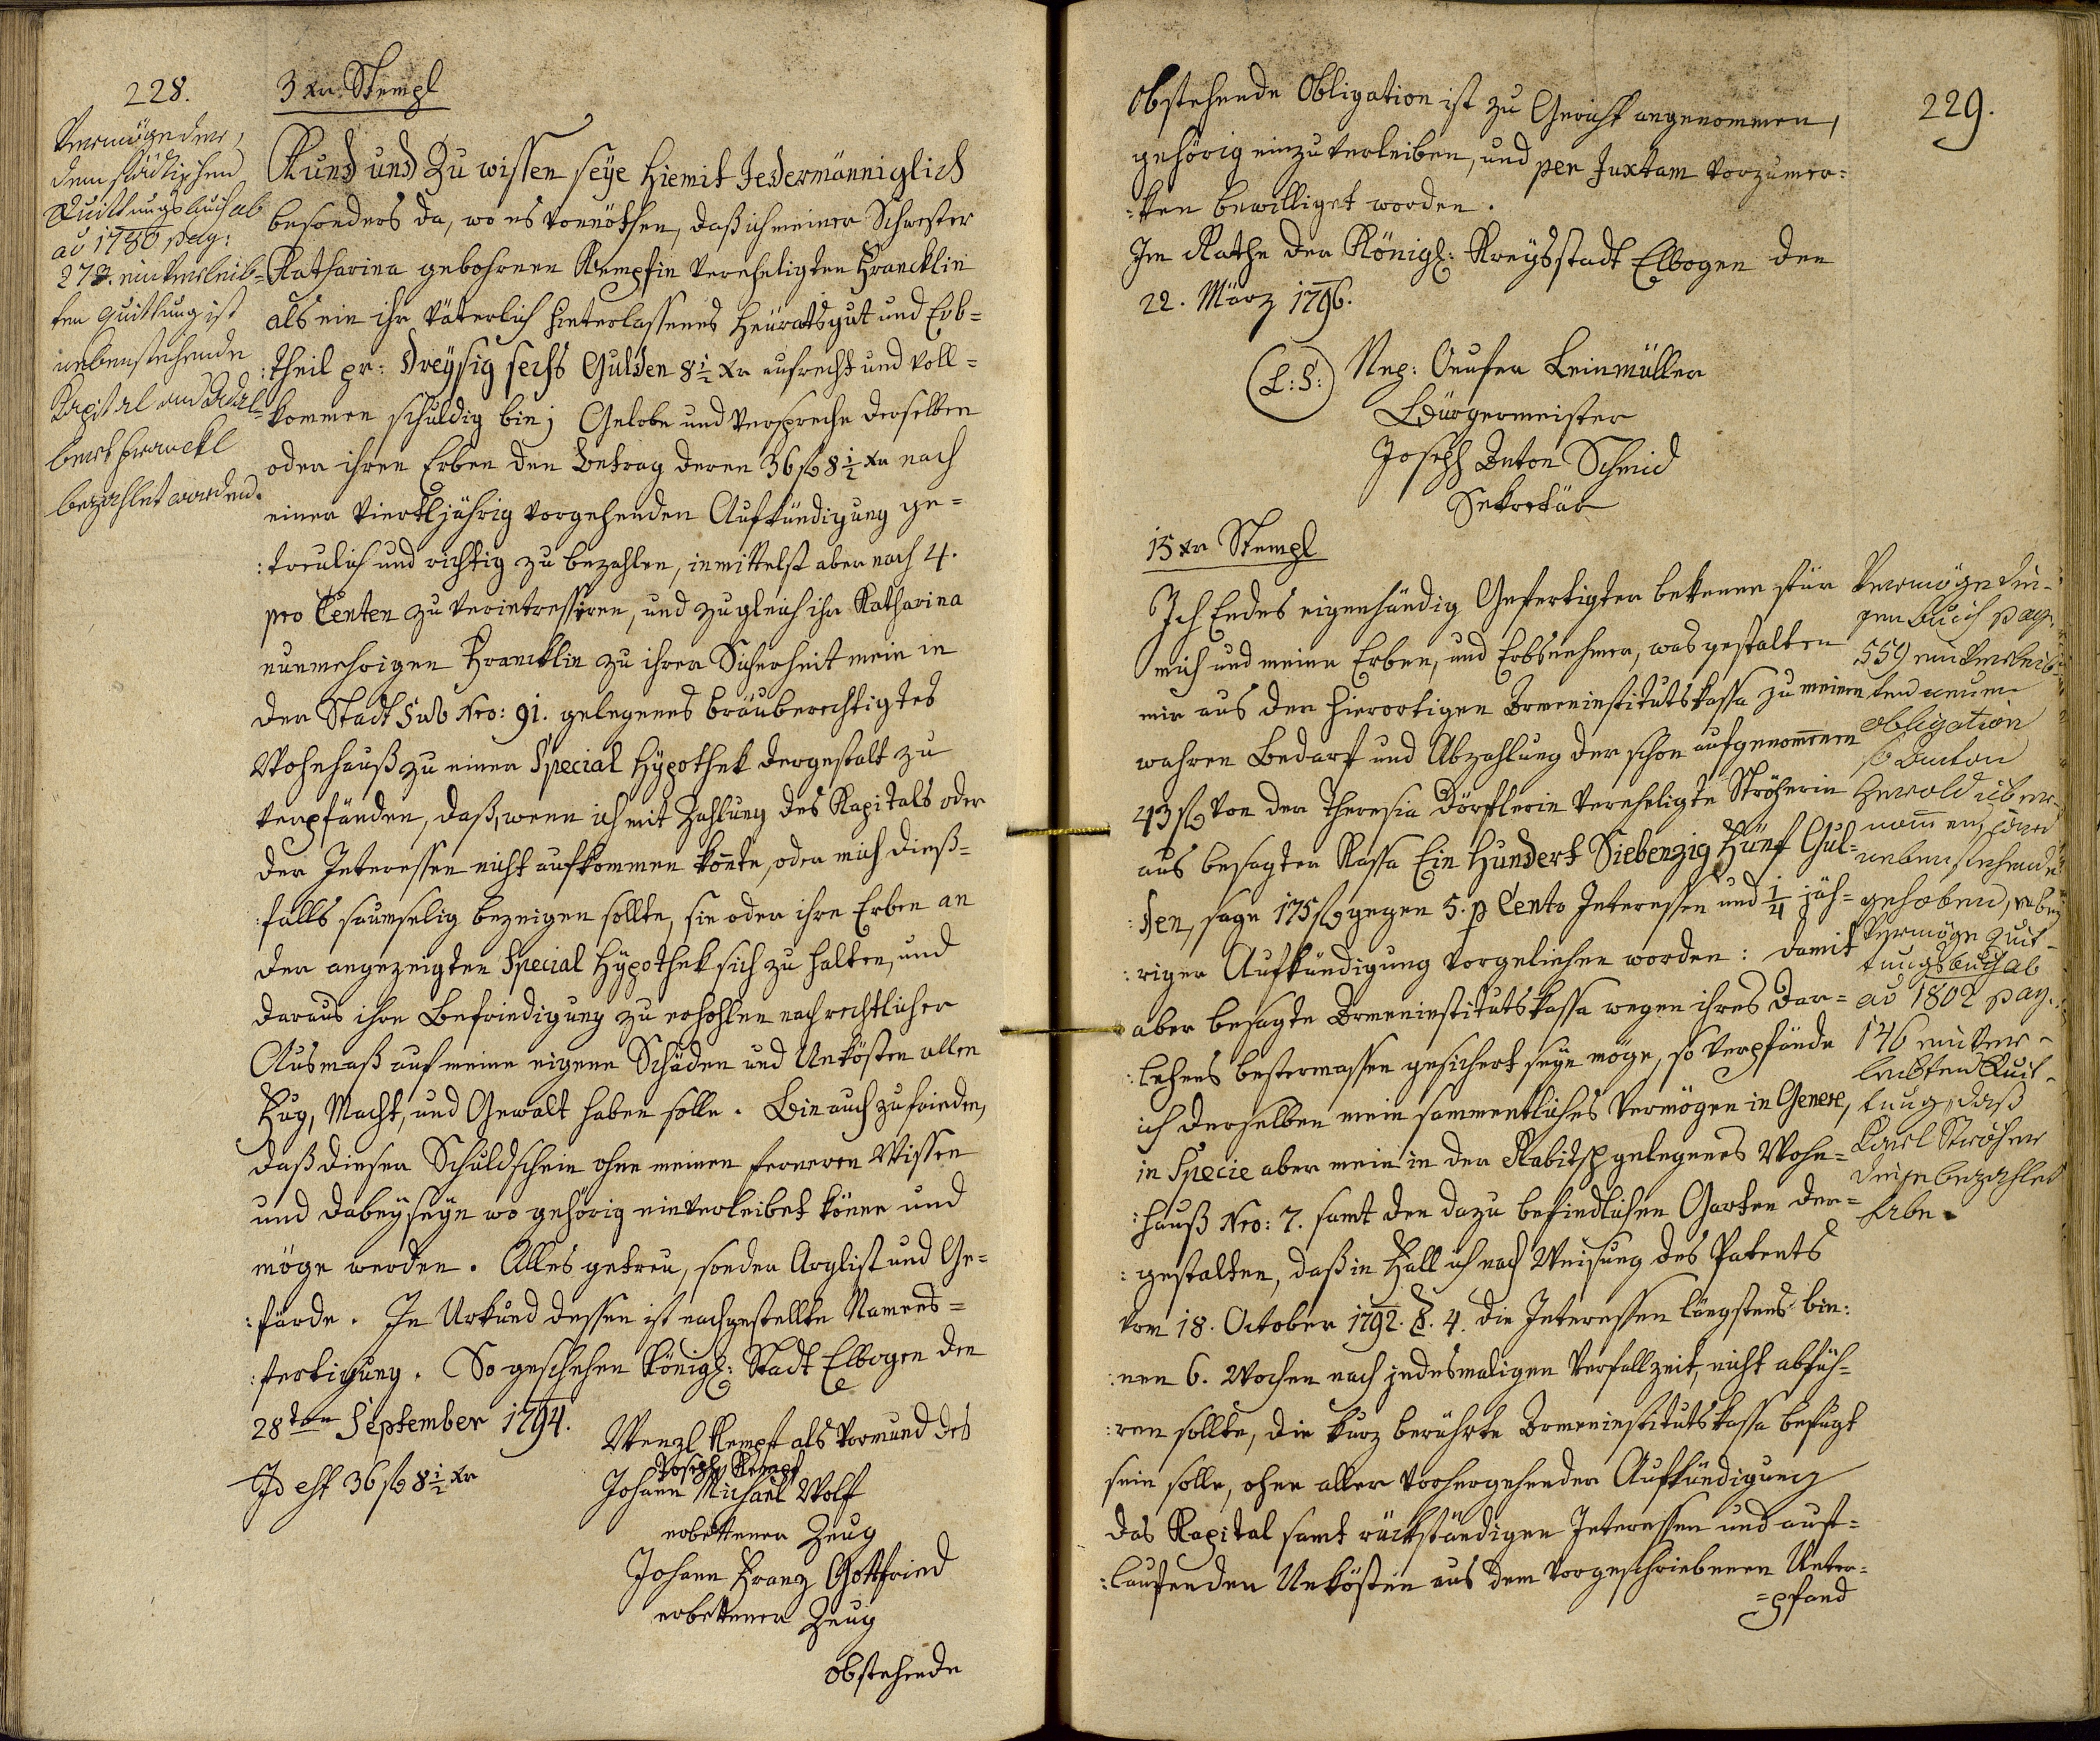 228.
3 xr. Stempl
Vermög der,
dem städtischen
Quittungsbuch ab
ao 1780 pag:
278. einverleib=
ten Quittung ist
nebenstehende
Kapital an Adal=
bert Franckl
bezahlet worden.
Kund und Zu wissen seye hiemit Jedermänniglich
besonders da, wo es vonnöthen, daß ich meiner Schwester
Katharina gebohrnen Kempfin verehligten Francklin
als ein ihr väterlich hinterlassenes Heüratsgut und Erb=
:theil pr: Dreysig sechs Gulden 8½ xr aufrecht und voll=
:kommen schuldig bin; Gelobe und verspreche derselben
oder ihren Erben den Betrag deren 36 fl 8½ xr nach
einer viertljährig vorgehenden Aufkündigung ge=
:treulich und richtig zu bezahlen, inmittelst aber nach 4.
pro Centen zu verintressiren, und zugleich ihr Katharina
nunmehrigen Francklin zu ihrer Sicherheit mein in
der Stadt Sub Nro: 91. gelegenes bräuberechtigtes
Wohnhauß zu einer Special Hypothek dergestalt zu
verpfänden, daß, wenn ich mit Zahlung des Kapitals oder
der Interessen nicht aufkommen könte, oder mich dieß=
:falls saumselig bezeigen sollte, sie oder ihre Erben an
der angezeigten Special Hypothek sich zu halten, und
daraus ihre Befriedigung zu erhohlen nach rechtlicher
Ausmaß auf meine eigene Schäden und Unkösten allen
Fug, Macht, und Gewalt haben solle. Bin auch zufrieden,
daß dieser Schuldschein ohne meinen ferneren Wissen
und Dabeyseyn wo gehörig einverleibet könne und
möge werden. Alles getreu, sonder Arglist und Ge=
:färde. In Urkund dessen ist nachgestellte Namens=
:fertigung. So geschehen Königl: Stadt Elbogen den
28ten September 1794.
Wenzl Kempf als Vormund des
Joseph Kempf
Id est 36 fl 8½ xr
Johann Michael Wolf
erbettener Zeug
Johann Franz Gottfried
erbettener Zeug
obstehende
229.
Obstehende Obligation ist zu Gericht angenommen,
gehörig einzuverleiben, und per Juxtam vorzumer=
:ken bewilliget worden.
Im Rathe der Königl: Kreysstadt Elbogen den
22. März 1796.
(L:S:) Nep: Leinmüller
Bürgermeister
Joseph Anton Schmid
Sekretär
15 xr Stempl
Ich Endes eigenhändig Gefertigter bekenne für
mich und meine Erben, und Erbsnehmer, was gestalten
mir aus der hierortigen Armeninstitutskassa zu meinen
wahren Bedarf und Abzahlung der schon aufgenommenen
43 fl von der Theresia Dörflerin verehligte Ströherin
aus besagter Kassa Ein Hundert Siebenzig Fünf Gul=
:den, sage 175 fl gegen 5. p Cento Interessen und ¼ jäh=
:riger Aufkündigung vorgeliehen worden: damit
aber besagte Armeninstitutskassa wegen ihres Dar=
:lehens bestermassen gesichert seyn möge, so verpfände
ich derselben mein sammentliches Vermögen in Genere,
in Specie aber mein in der Rabitsch gelegenes Wohn=
:hauß Nro: 7. samt den dazu befindlichen Garten der=
:gestalten, daß in Fall ich nach Weisung des Patents
vom 18. October 1792. §. 4. die Interessen längstens bin:
:nen 6. Wochen nach jedesmaligen Verfallzeit, nicht abfüh=
:ren sollte, die kurz berührte Armeninstitutskassa befugt
sein solle, ohne aller vorhergehender Aufkündigung
das Kapital samt rückständigen Interessen und auf=
:laufenden Unkösten aus dem vorgeschriebenen Unter=
=pfand
Vermög die=
gen Buch pag.
559 einverleib=
ten neuen
Obligation
Anton
Herold über=
nommen, und
nebenstehende
gehoben,
Vermög Quit=
tungsbuch ab
ao 1802 pag.
146 einver=
leibten Quit=
tung, daß
Karl Ströher
diese bezahlet
habe.